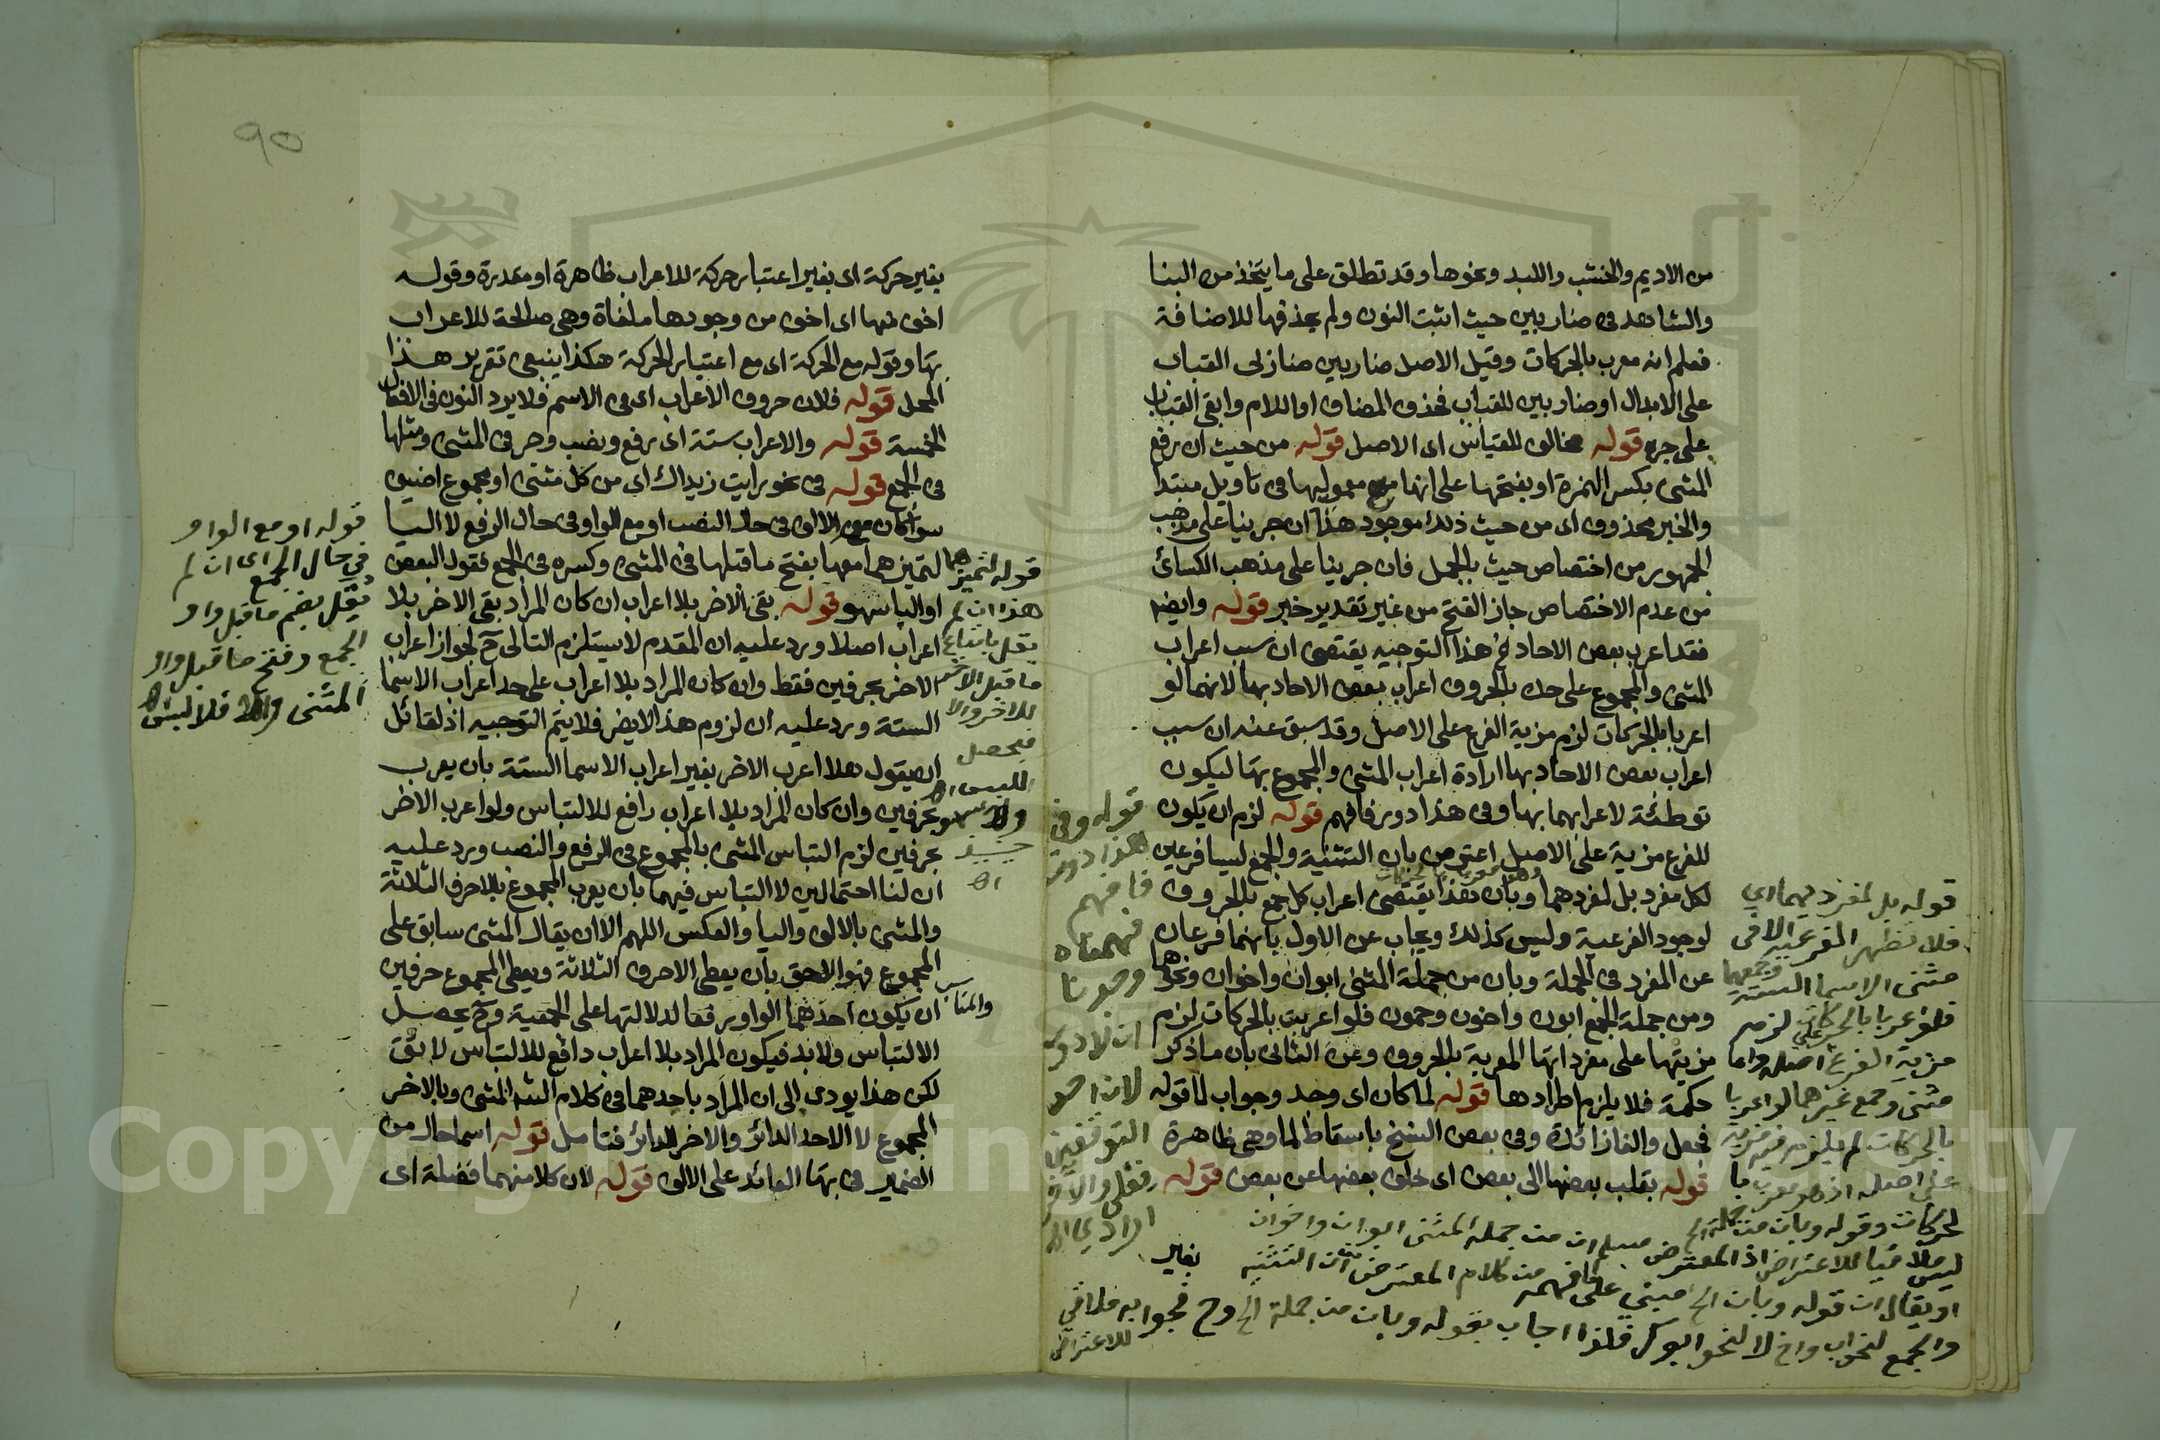 من الاديم والخشب واللبد ونحوها وقد تطلق على ما يتخذ من البنا
والشاهد فى ضاربين حيث اثبت النون ولم يحذفها للاضافة
فعلم انه معرب بالحركات وقيل الاصل ضاربين ضازلى القباب
على الابدال او ضاربين للقباب فحذف المضاف او اللام وابقى القباب
على جره قوله مخالف للقياس اى الاصل قوله من حيث ان برفع
المثنى بكسر الهمزة او بفتحها على انها مع معموليها فى تاويل مبتدا
والخبر محذوف اى من حيث ذلك موجود هذا ان جرينا على مذهب
الجمهور من اختصاص حيث بالجمل فان جرينا على مذهب الكسائ
من عدم الاختصاص جاز الفتح من غير تقدير خبر قوله وايضا
فقد اعرب بعض الاحاد الخ هذا التوجيه يقتضى ان سبب اعراب
المثنى والمجموع على حده بالحروف اعراب بعض الاحاد بها لانهما لو
اعربا بالحركات لزم مزية الفرع على الاصل وقد سبق عنه ان سبب
اعراب بعض الاحاد بها ارادة اعراب المثنى والمجموع بها ليكون
توطئة لاعرابهما بها وفى هذا دور فافهم قوله لزم ان يكون
للفرع مزية على الاصل اعترض بان التثنية والجمع ليسا فرعين
لكل مفرد بل لمفردهما وبان هذا يقتضى اعراب كل جمع بالحروف
لوجود الفرعية وليس كذلك ويجاب عن الاول بانهما فرعان
عن المفرد فى الجملة وبان من جملة المثنى ابوان واخوان ونحوهما
ومن جملة الجمع ابون واخون وحمون فلو اعربت بالحركات لزم
مزيتها على مفرداتها المعربة بالحروف وعن الثانى بان ما ذكر
حكمة فلا يلزم اطرادها قوله لما كان اى وجد وجواب لما قوله
فجعل والفا زائدة وفى بعض النسخ باسقاط لما وهى ظاهرة
قوله بقلب بعضها الى بعض اى خلف بعضها عن بعض قوله
بغير
قوله وفى
هذا دور
فافهم
فهمناه
وجدنا
ان لا دور
لان احد
قوله بل لمفرديهما اى
فلا تظهر الفرعية الا فى
مثنى الاسما الستة وجمعها
فلو عربا بالحركات لزم
مزية الفرع على اصله واما
مثنى وجمع غيرها لو اعربا
بالحركات لم يلزم فيه مزية
على اصله اذ هو معرب با
لحركات وقوله وبان من جملة الخ
ليس ملاقيا للاعتراض اذ المعترض مسلم ان من جملة المثنى ابوان واخوان
او يقال ان قوله وبان الخ مبنى على ما فهمه من كلام المعترض من ان التثنية
والجمع لنحو اب واخ لا لنحو ابوك فلذا اجاب بقوله وبان من جملة الخ وح فجوابه ملاقى
للاعتراض
٩٥
بغير حركة اى بغير اعتبار حركة للاعراب ظاهرة او مقدرة وقوله
اخف منها اى اخف من وجودها ملغاة وهى صالحة للاعراب
بها وقوله مع الحركة اى مع اعتبار الحركة هكذا ينبغى تقرير هذا
المحل قوله فلان حروف الاعراب اى فى الاسم فلا يرد النون فى الافعال
الخمسة قوله والاعراب ستة اى رفع ونصب وجر فى المثنى ومثلها
فى الجمع قوله فى نحو رايت زيداك اى من كل مثنى او مجموع اضيف
سوا كان مع الالف فى حال النصب او مع الواو فى حال الرفع لا اليا
لتميزهما معها بفتح ما قبلها فى المثنى وكسره فى الجمع فقول البعض
او اليا سهو قوله بقى الاخر بلا اعراب ان كان المراد بقى الاخر بلا
اعراب اصلا ورد عليه ان المقدم لا يستلزم التالى ح لجواز اعراب
الاخر بحرفين فقط وان كان المراد بلا اعراب على حد اعراب الاسما
الستة ورد عليه ان لزوم هذا لا يضر فلا يتم التوجيه اذ لقائل
ان يقول هلا اعرب الاخر بغير اعراب الاسما الستة بان يعرب
بحرفين وان كان المراد بلا اعراب رافع للالتباس ولو اعرب الاخر
بحرفين لزم التباس المثنى بالمجموع فى الرفع والنصب ورد عليه
ان لنا احتمالين لا التباس فيهما بان يعرب المجموع بالاحرف الثلاثة
والمثنى بالالف واليا والعكس اللهم الا ان يقال المثنى سابق على
المجموع فهو الاحق بان يعطى الاحرف الثلاثة ويعطى المجموع حرفين
ان يكون احدهما الواو رفعا لدلالتها على الجمعية وح يحصل
الالتباس ولا بد فيكون المراد بلا اعراب دافع للالتباس لائق
لكن هذا يودى الى ان المراد باحدهما فى كلام الشه المثنى وبالاخر
المجموع لا الاحد الدائر والاخر الدائر فتامل قوله اسما حال من
الضمير فى بها العائد على الالف قوله لان كلا منهما فضلة اى
قوله لتميزهما
هذا ان لم
يقل باتباع
فيحصل
اللبس اه
والمناسب
قوله او مع الواو
فى حال الخ اى ان لم
يقل بضم ما قبل واو
الجمع وفتح ما قبل واو
المثنى والا فلا لبس اه